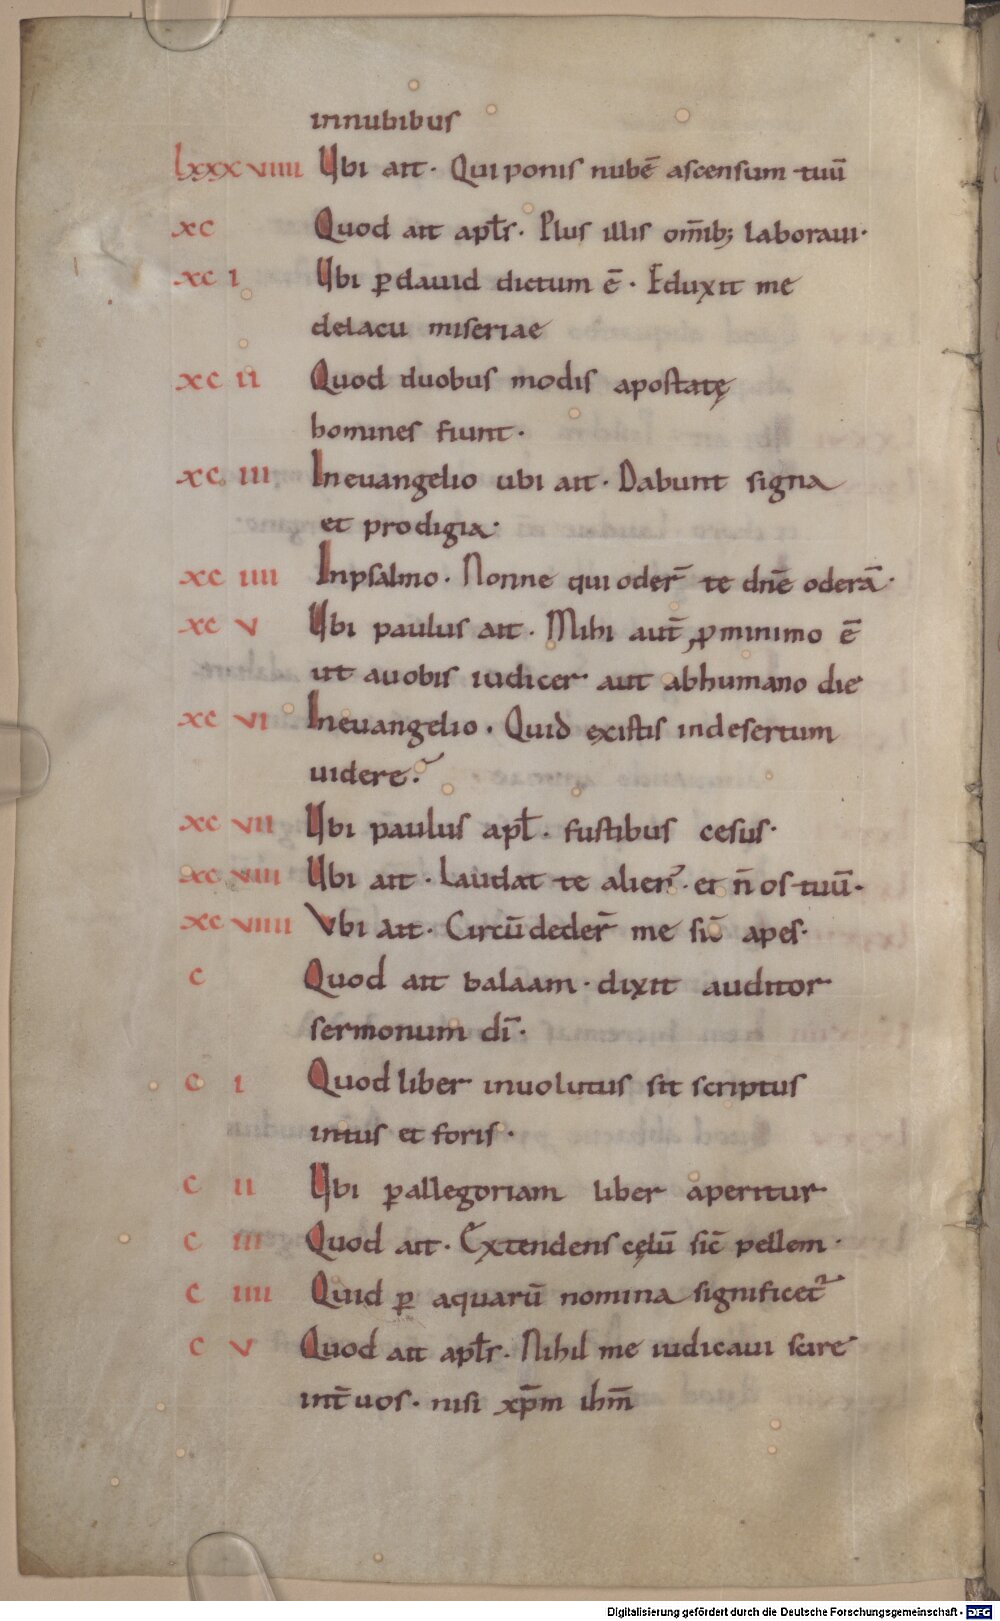 innubibus
lxxxviiii Ubi ait· Qui ponis nubē ascensum tuū
xc Quod ait apl̄s· Plus illis om̄ib; laboraui·
xc i Ubi ꝑ dauid dictum ē· Eduxit me
delacu miseriae
xc ii Quod duobus modis apostatę
homines fiunt·
xc iii In euangelio ubi ait· Dabunt signa
et prodigia·
xc iiii In psalmo· Nonne qui oder̄ te dn̄e oderā·
xc v Ubi paulus ait· Mihi aut̄ ꝓ minimo ē
ut auobis iudicer aut abhumano die
xc vi In euangelio· Quid existis indesertum
uidere?
xc vii Ubi paulus apl̄· fustibus cesus·
xc viii Ubi ait· Laudat te alien᷒· et n̄ os tuū·
xc viiii Vbi ait· Circūdeder̄ me sic̄ apes·
c Quod ait balaam· dixit auditor
sermonum dī·
c i Quod liber inuolutus sit scriptus
intus et foris·
c ii Ubi ꝑ allegoriam liber aperitur
c iii Quod ait· Extendens cęlū sic̄ pellem·
c iiii Quid ꝑ aquarū nomina significet᷑
c v Quod ait apl̄s· Nihil me iudicaui scire
int̄ uos· nisi xp̄m ihm̄
Digitalisierung gefördert durch die Deutsche Forschungsgemeinschaft - DFG